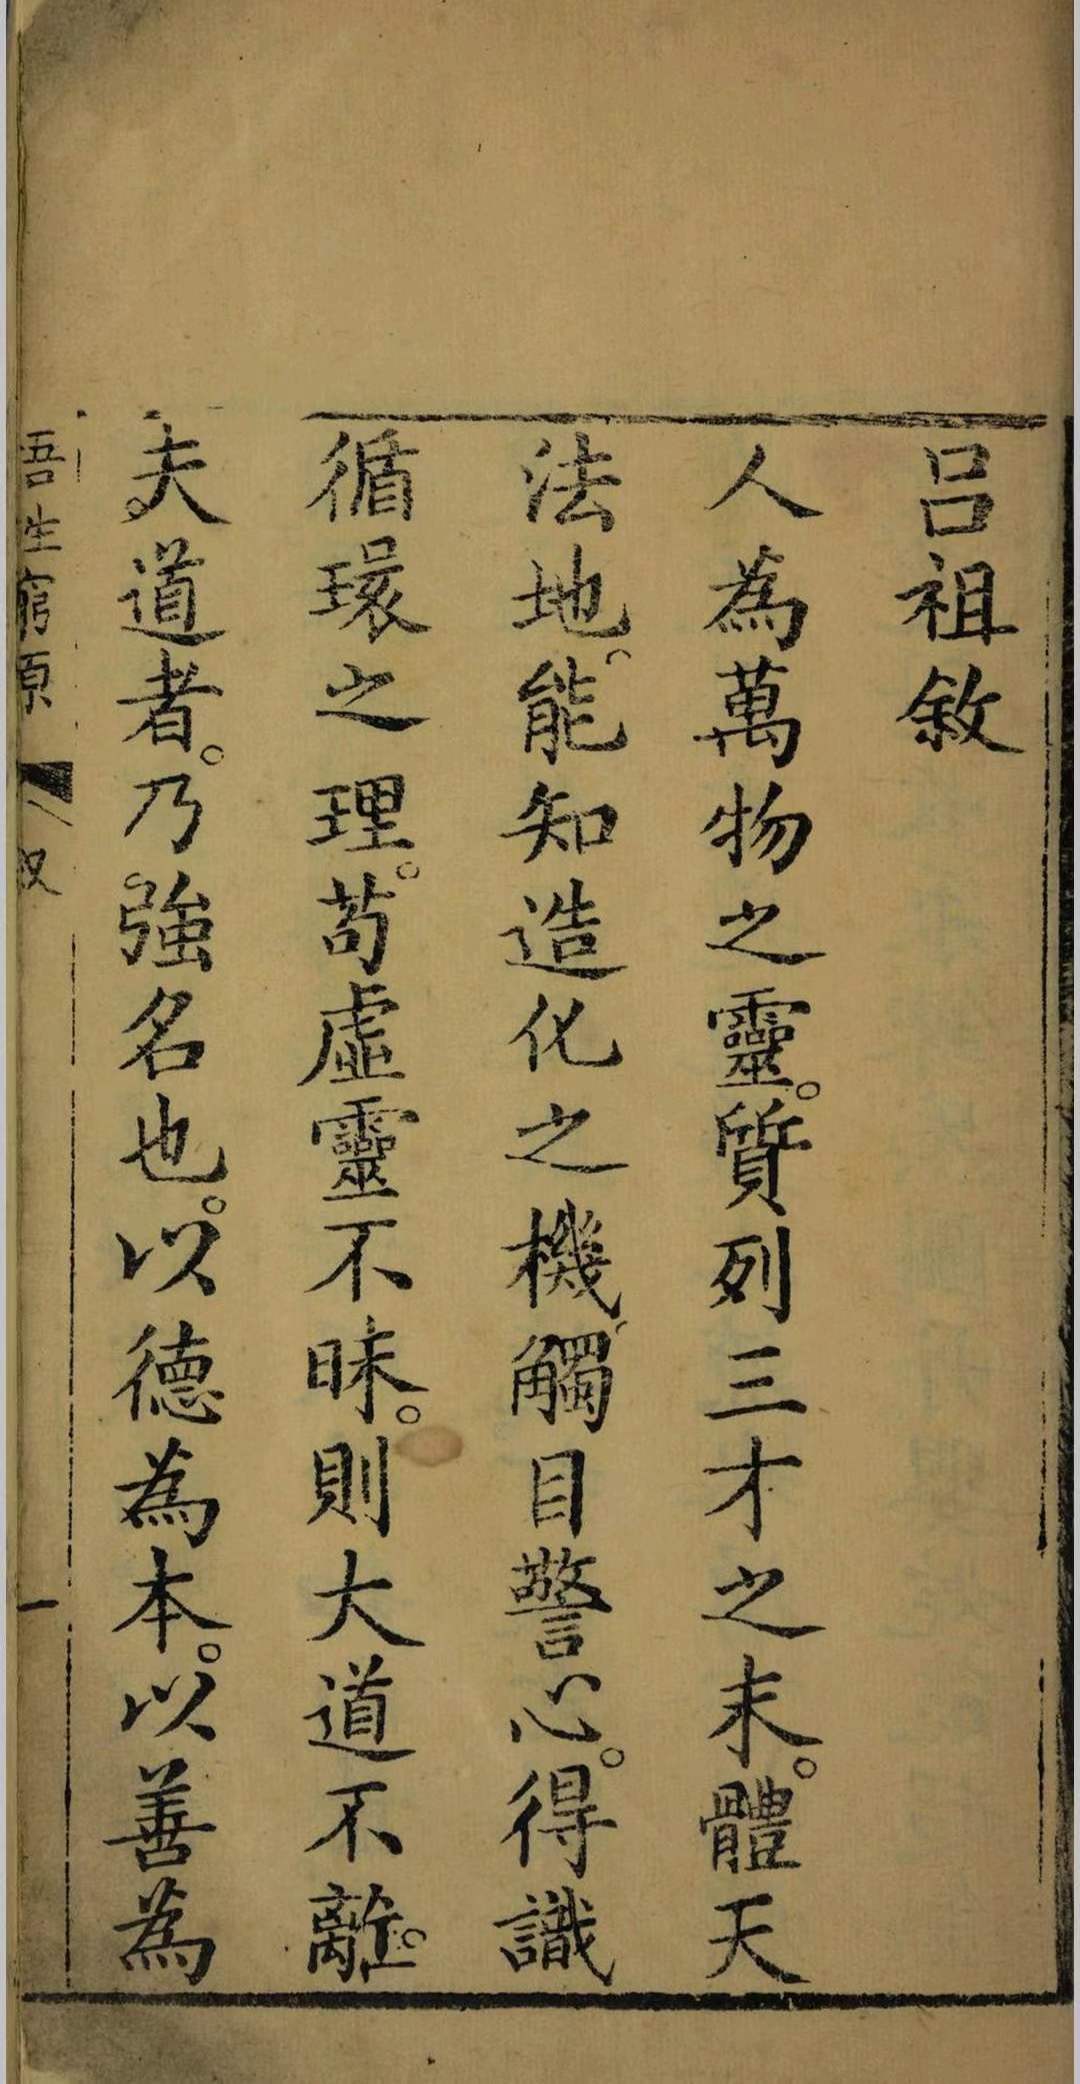 呂祖敘
人為萬物之靈。質列三才之末。體天
法地。能知造化之機、觸目警心。得識
循環之理。苟虛靈不昧。則大道不離。
夫道者。乃強名也。以德為本。以善為
吾生 原 一